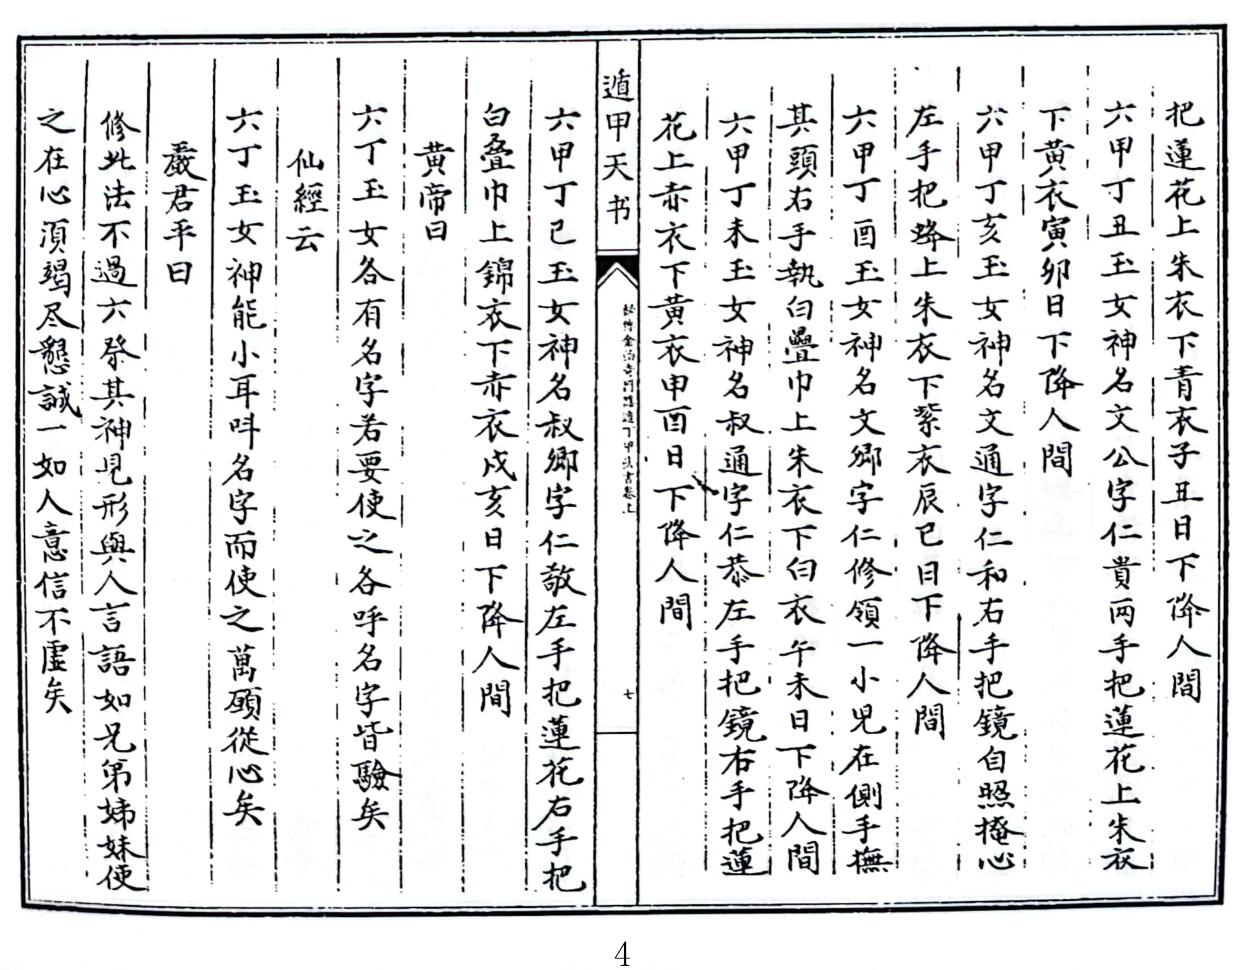 把蓮花上朱衣下青衣子丑日下降人間
六甲丁丑玉女神名文公字仁貴兩手把蓮花上朱衣
下黃衣寅卯日下降人間
六甲丁亥玉女神名文通字仁和右手把鏡自照掩心
左手把絳上朱衣下紫衣辰巳日下降人間
六甲丁酉玉女神名文卿字仁修領一小兒在側手撫
其頭右手執白疊巾上朱衣下白衣午未日下降人間
六甲丁未玉女神名叔通字仁恭左手把鏡右手把蓮
花上赤衣下黃衣申酉日下降人間
遁甲天书
七
六甲丁巳玉女神名叔卿字仁敬左手把蓮花右手把
白疊巾上錦衣下赤衣戌亥日下降人間
黃帝曰
六丁玉女各有名字若要使之各呼名字皆驗矣
仙經云
六丁玉女神能小耳呌名字而使之萬願從心矣
嚴君平曰
修此法不過六祭其神見形與人言語如兄弟姊妹使
之在心須竭尽懇誠一如人意信不虛矣
4